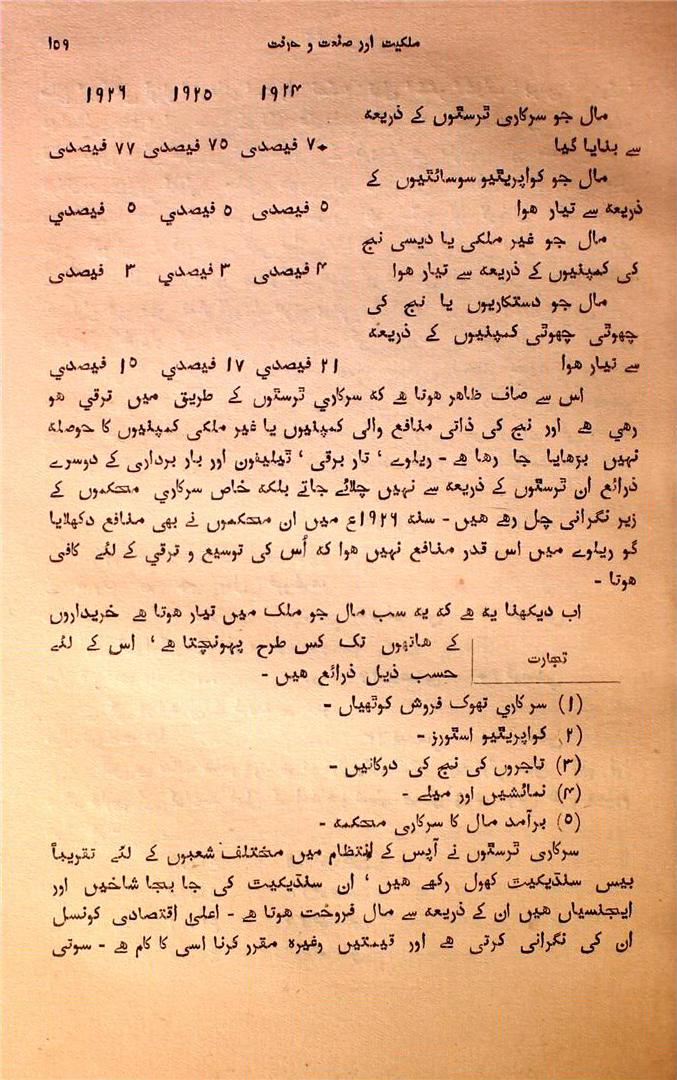 ملکیت اور صنعت و حرفت ۱۵۹
۱۹۲۴ ۱۹۲۵ ۱۹۲۶
مال جو سرکاری ٹرسٹوں کے ذریعہ
سے بنایا گیا ۷۰ فیصدی ۷۵ فیصدی ۷۷ فیصدی
مال جو کواپریٹیو سوسائٹیوں کے
ذریعہ سے تیار ہوا ۵ فیصدی ۵ فیصدی ۵ فیصدی
مال جو غیر ملکی یا دیسی نج
کی کمپنیوں کے ذریعہ سے تیار ہوا ۴ فیصدی ۳ فیصدی ۳ فیصدی
مال جو دستکاریوں یا نج کی
چھوٹی چھوٹی کمپنیوں کے ذریعہ
سے تیار ہوا ۲۱ فیصدی ۱۷ فیصدی ۱۵ فیصدی
اس سے صاف ظاہر ہوتا ہے کہ سرکاری ٹرسٹوں کے طریق میں ترقی ہو
رہی ہے اور نج کی ذاتی منافع والی کمپنیوں یا غیر ملکی کمپنیوں کا حوصلہ
نہیں بڑھایا جا رہا ہے - ریلوے ' تار برقی ' ٹیلیفون اور بار برداری کے دوسرے
ذرائع ان ٹرسٹوں کے ذریعہ سے نہیں چلائے جاتے بلکہ خاص سرکاری محکموں کے
زیر نگرانی چل رہے ہیں - سنہ ۱۹۲۶ع میں ان محکموں نے بھی منافع دکھلایا
گو ریلوے میں اس قدر منافع نہیں ہوا کہ اُس کی توسیع و ترقی کے لئے کافی
ہوتا -
اب دیکھنا یہ ہے کہ یہ سب مال جو ملک میں تیار ہوتا ہے خریداروں
تجارت
کے ہاتھوں تک کس طرح پہونچتا ہے ' اس کے لئے
حسب ذیل ذرائع ہیں -
(۱) سرکاری تھوک فروش کوٹھیاں -
(۲) کواپریٹیو اسٹورز -
(۳) تاجروں کی نج کی دوکانیں -
(۴) نمائشیں اور میلے -
(۵) برآمد مال کا سرکاری محکمہ -
سرکاری ٹرسٹوں نے آپس کے انتظام میں مختلف شعبوں کے لئے تقریباً
بیس سنڈیکیٹ کھول رکھے ہیں ' ان سنڈیکیٹ کی جا بجا شاخیں اور
ایجنسیاں ہیں ان کے ذریعہ سے مال فروخت ہوتا ہے - اعلیٰ اقتصادی کونسل
ان کی نگرانی کرتی ہے اور قیمتیں وغیرہ مقرر کرنا اسی کا کام ہے - سوتی